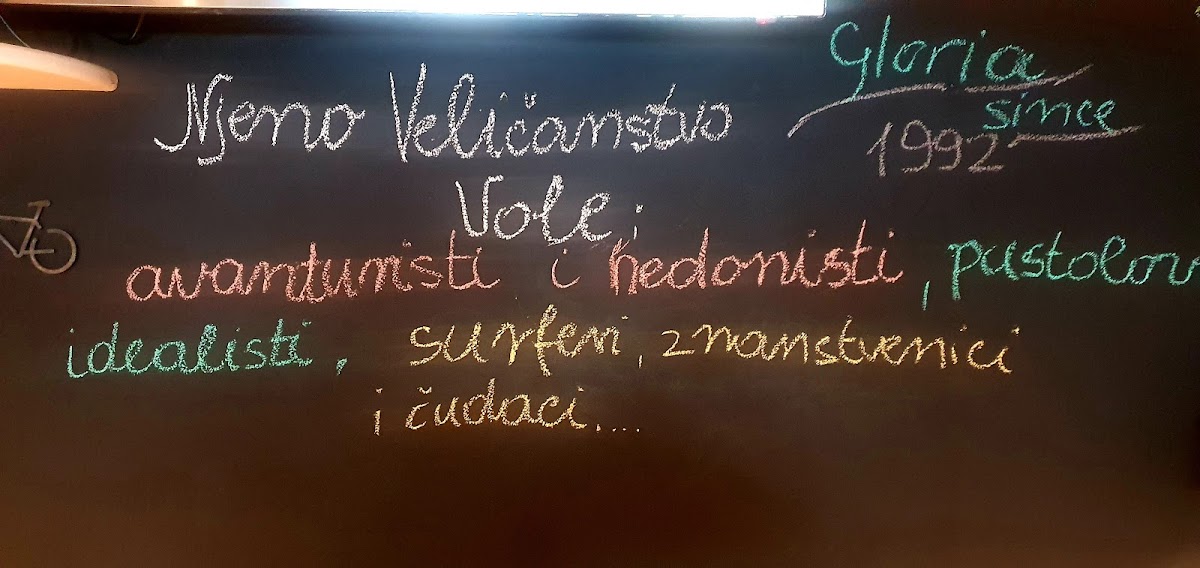 Gloria
since
1992
Njeno Veličanstvo
Vole;
avanturisti i hedonisti, pustolov
idealisti, surferi, znanstvenici
i čudaci....